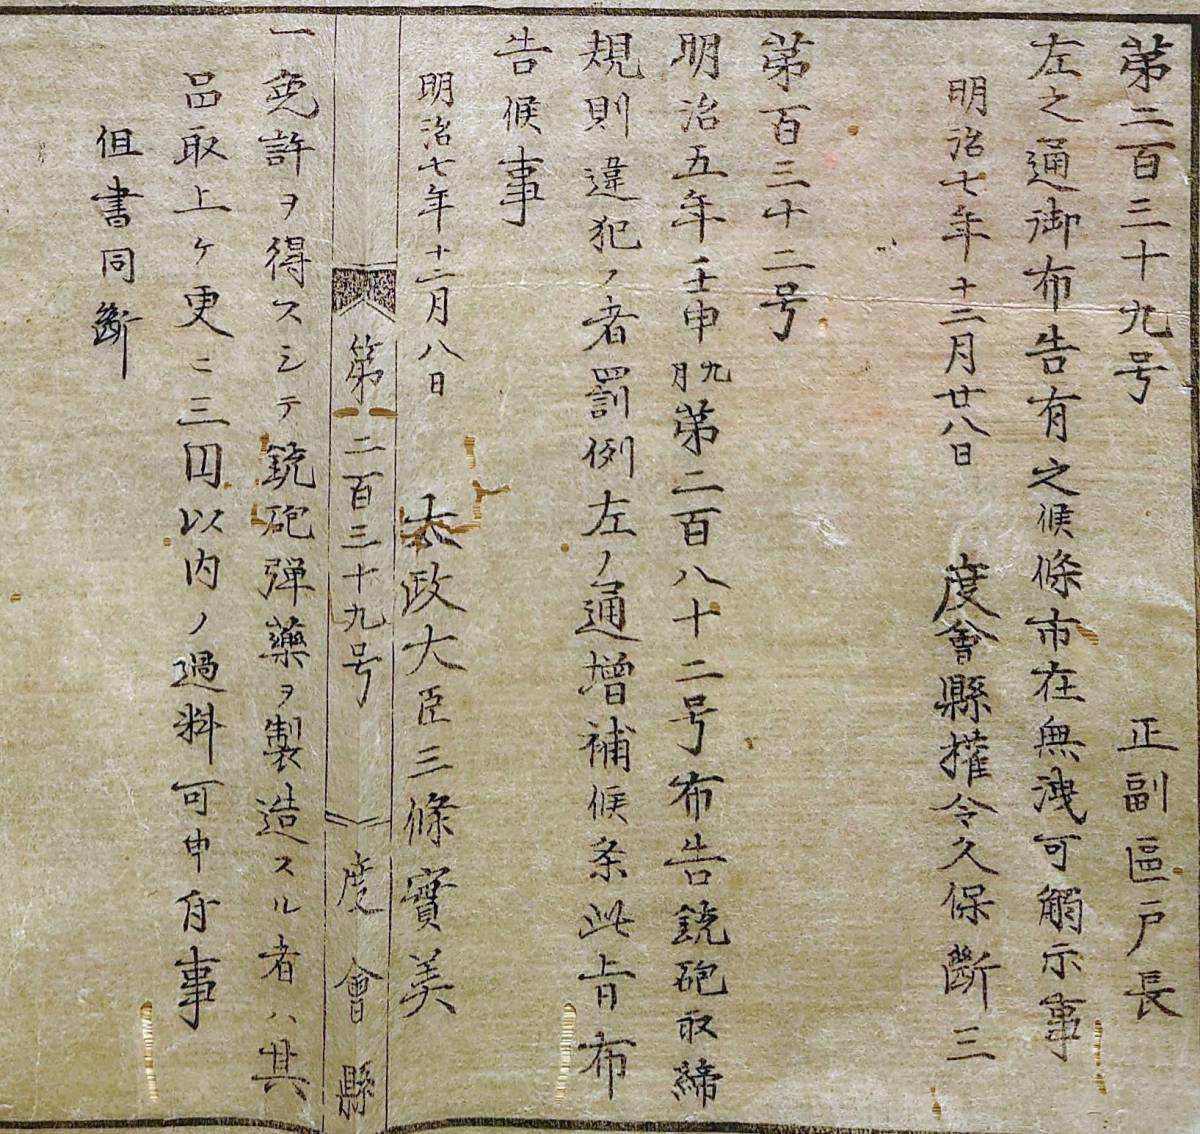 第二百三十九号
正副區戸長
左之通御布告有之候條市在無洩可觸示事
明治七年十二月廿八日
度會縣權令久保斷三
第百三十二号
明治五年壬申九月第二百八十二号布告銃砲取締
規則違犯ノ者罰例左ノ通増補候条此旨布
告候事
明治七年十二月八日
太政大臣三條實美
第二百三十九号
度會縣
一免許ヲ得スシテ銃砲弾藥ヲ製造スル者ハ其
品取上ケ更ニ三円以内ノ過料可申付事
但書同斷